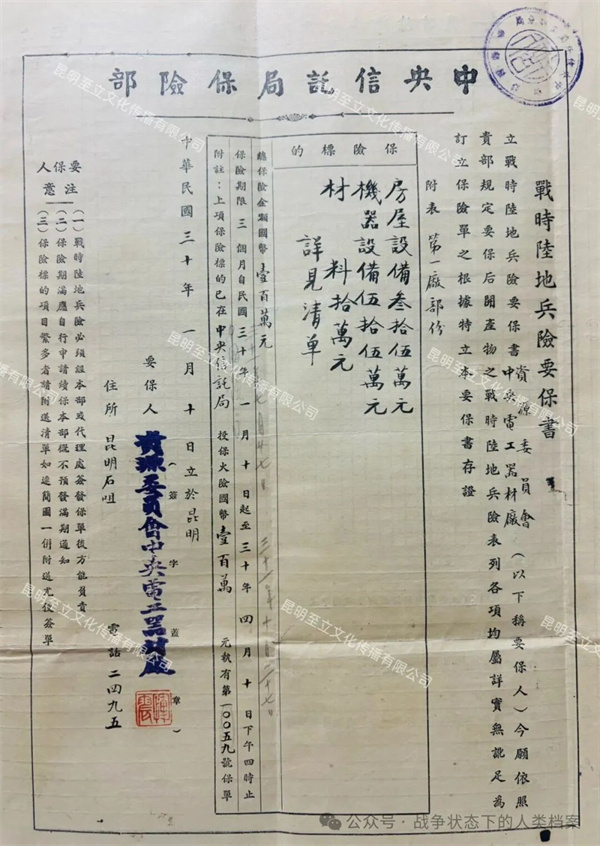 中央信託局保險部
戰時陸地兵險要保書
立戰時陸地兵險要保書資源委員會中央電工器材廠（以下稱要保人）今願依照
貴部規定要保后開產物之戰時陸地兵險表列各項均屬詳實無訛足為
訂立保險單之根據特立本要保書存證
附表 第一廠部份
保險標的
房屋設備叁拾伍萬元
機器設備伍拾伍萬元
材料拾萬元
詳見清單
總保險金額國幣壹百萬元
保險期限三個月自民國三十年一月十日起至三十年四月十日下午四時止
附註：上項保險標的已在中央信託局投保火險國幣壹百萬元執有第一００五九號保單
中華民國三十年一月十日立於昆明
要保人 資源委員會中央電工器材廠
（簽字蓋章）
住所 昆明石咀 電話二四九五
要保人注意
（一）戰時陸地兵險必須經本部或代理處簽發保單後方能負責
（二）保險期滿應自行申請續保本部概不預發滿期通知
（三）保險標的項目繁多者請附送清單如近簡圖一併附送尤便簽單
昆明至立文化传播有限公司
公众号・战争状态下的人类档案